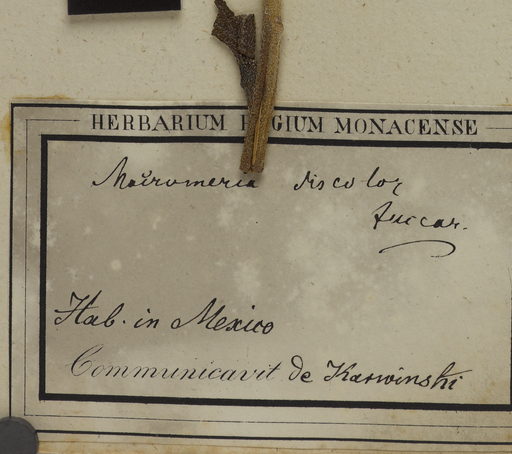 HERBARIUM REGIUM MONACENSE
Macromeria discolor
Zuccar.
Hab. in Mexico
Communicavit de Karwinski